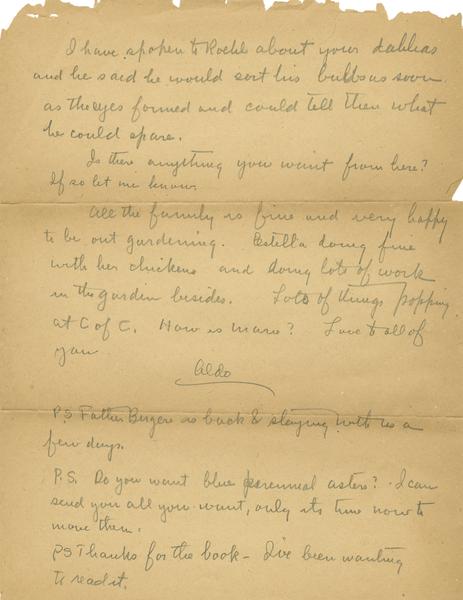 I have spoken to Roehl about your dahlias
and he said he would sort his bulbs as soon
as the eyes formed and could tell then what
he could spare.
Is there anything you want from here?
If so let me know.
All the family is fine and very happy
to be out gardening. Estella doing fine
with her chickens and doing lots of work
in the garden besides. Lots of things popping
at C of C. How is Marie? Love to all of
you
Aldo
P.S Father Berger is back & staying with us a
few days.
P.S. Do you want blue perennial asters? I can
send you all you want, only its time now to
move them.
PS Thanks for the book - I've been wanting
to read it.